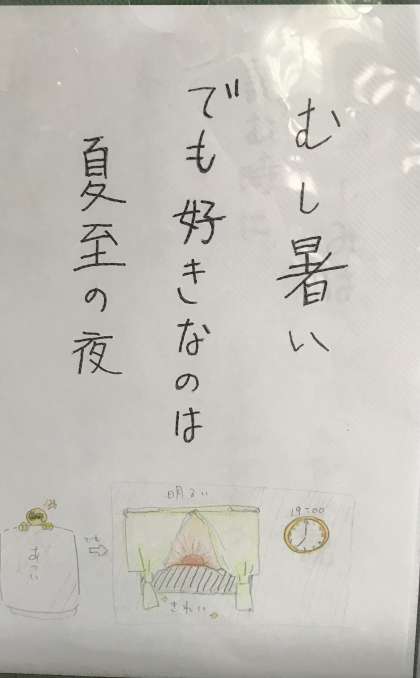 むし暑い
でも好きなのは
夏至の夜
明るい
19:00
あつい
でも
きれい